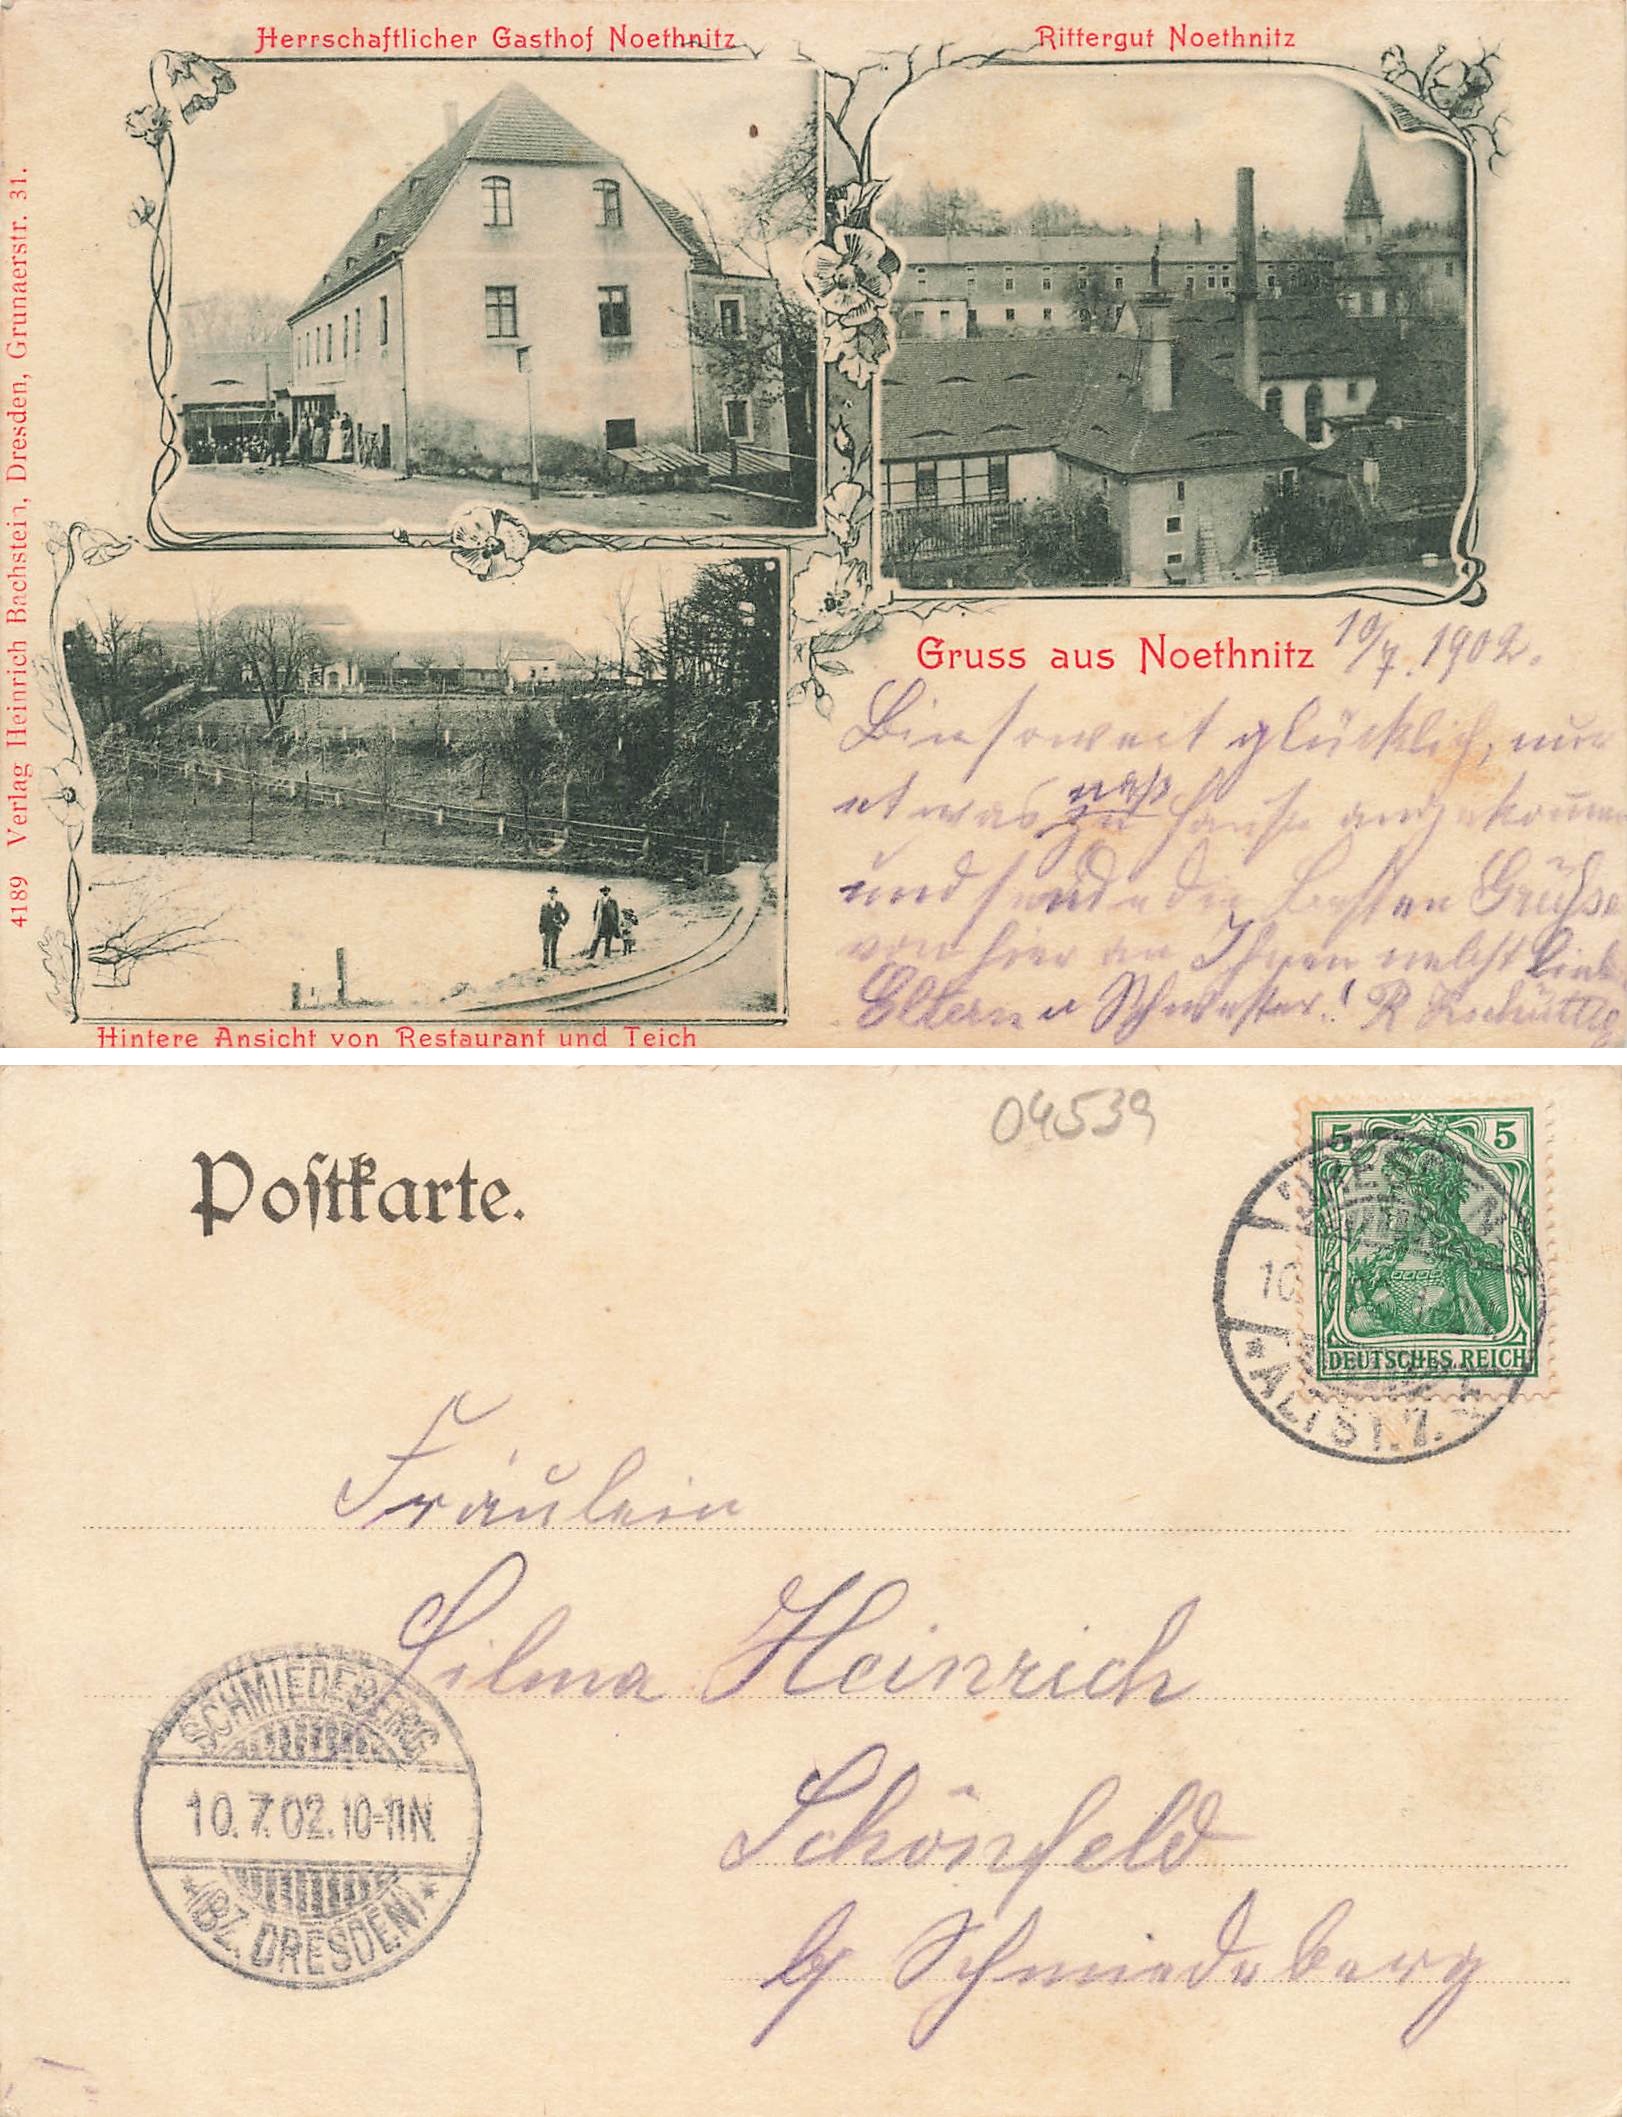 Herrschaftlicher Gasthof Noethnitz
Rittergut Noethnitz
4189 Verlag Heinrich Bachstein, Dresden, Grunaerstr. 31.
Gruss aus Noethnitz 10/7. 1902.
Bin soweit glücklich, nur
etwas naß zu Hause angekommen
und sende die besten Grüße
von hier an Ihnen nebst liebe
Eltern u Schwester! R
Hintere Ansicht von Restaurant und Teich
04539
Postkarte.
5 5
DEUTSCHES REICH
DRESDEN
10
* ALTST. 7.
Fräulein
Silma Heinrich
Schönfeld
b/ Schmiedeberg
SCHMIEDEBERG
10.7.02.10-11N.
* (BZ. DRESDEN) *